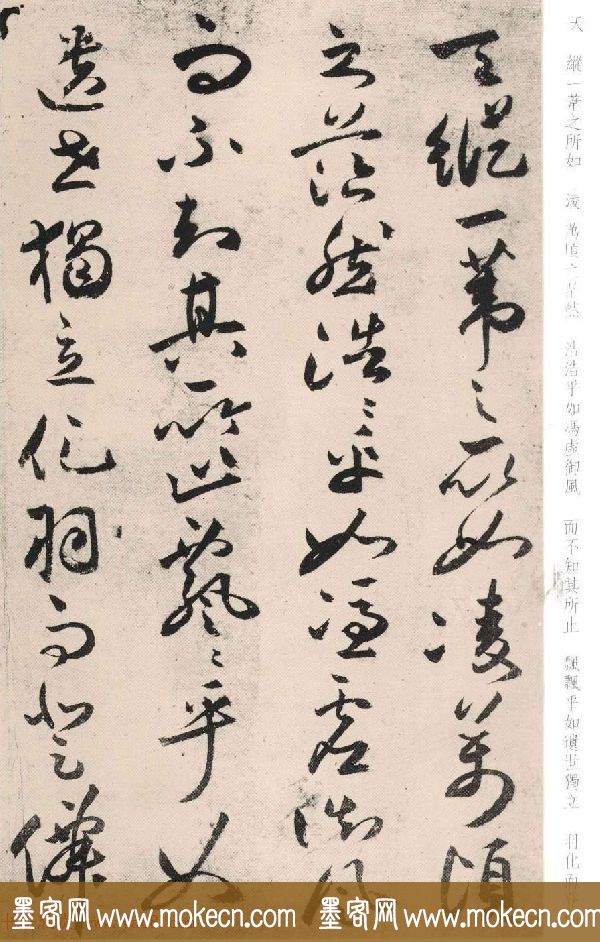 天 縱一葦之所如 凌 萬頃之茫然 浩浩乎如馮虛御風 而不知其所止 飄飄乎如遺世獨立 羽化而
天縱一葦之所如凌萬頃
之茫然浩〻乎如馮虛御風
而不知其所止飄〻乎如
遺世獨立化羽而登僊
墨客网 www.mokecn.com 墨客网 www.mokecn.com